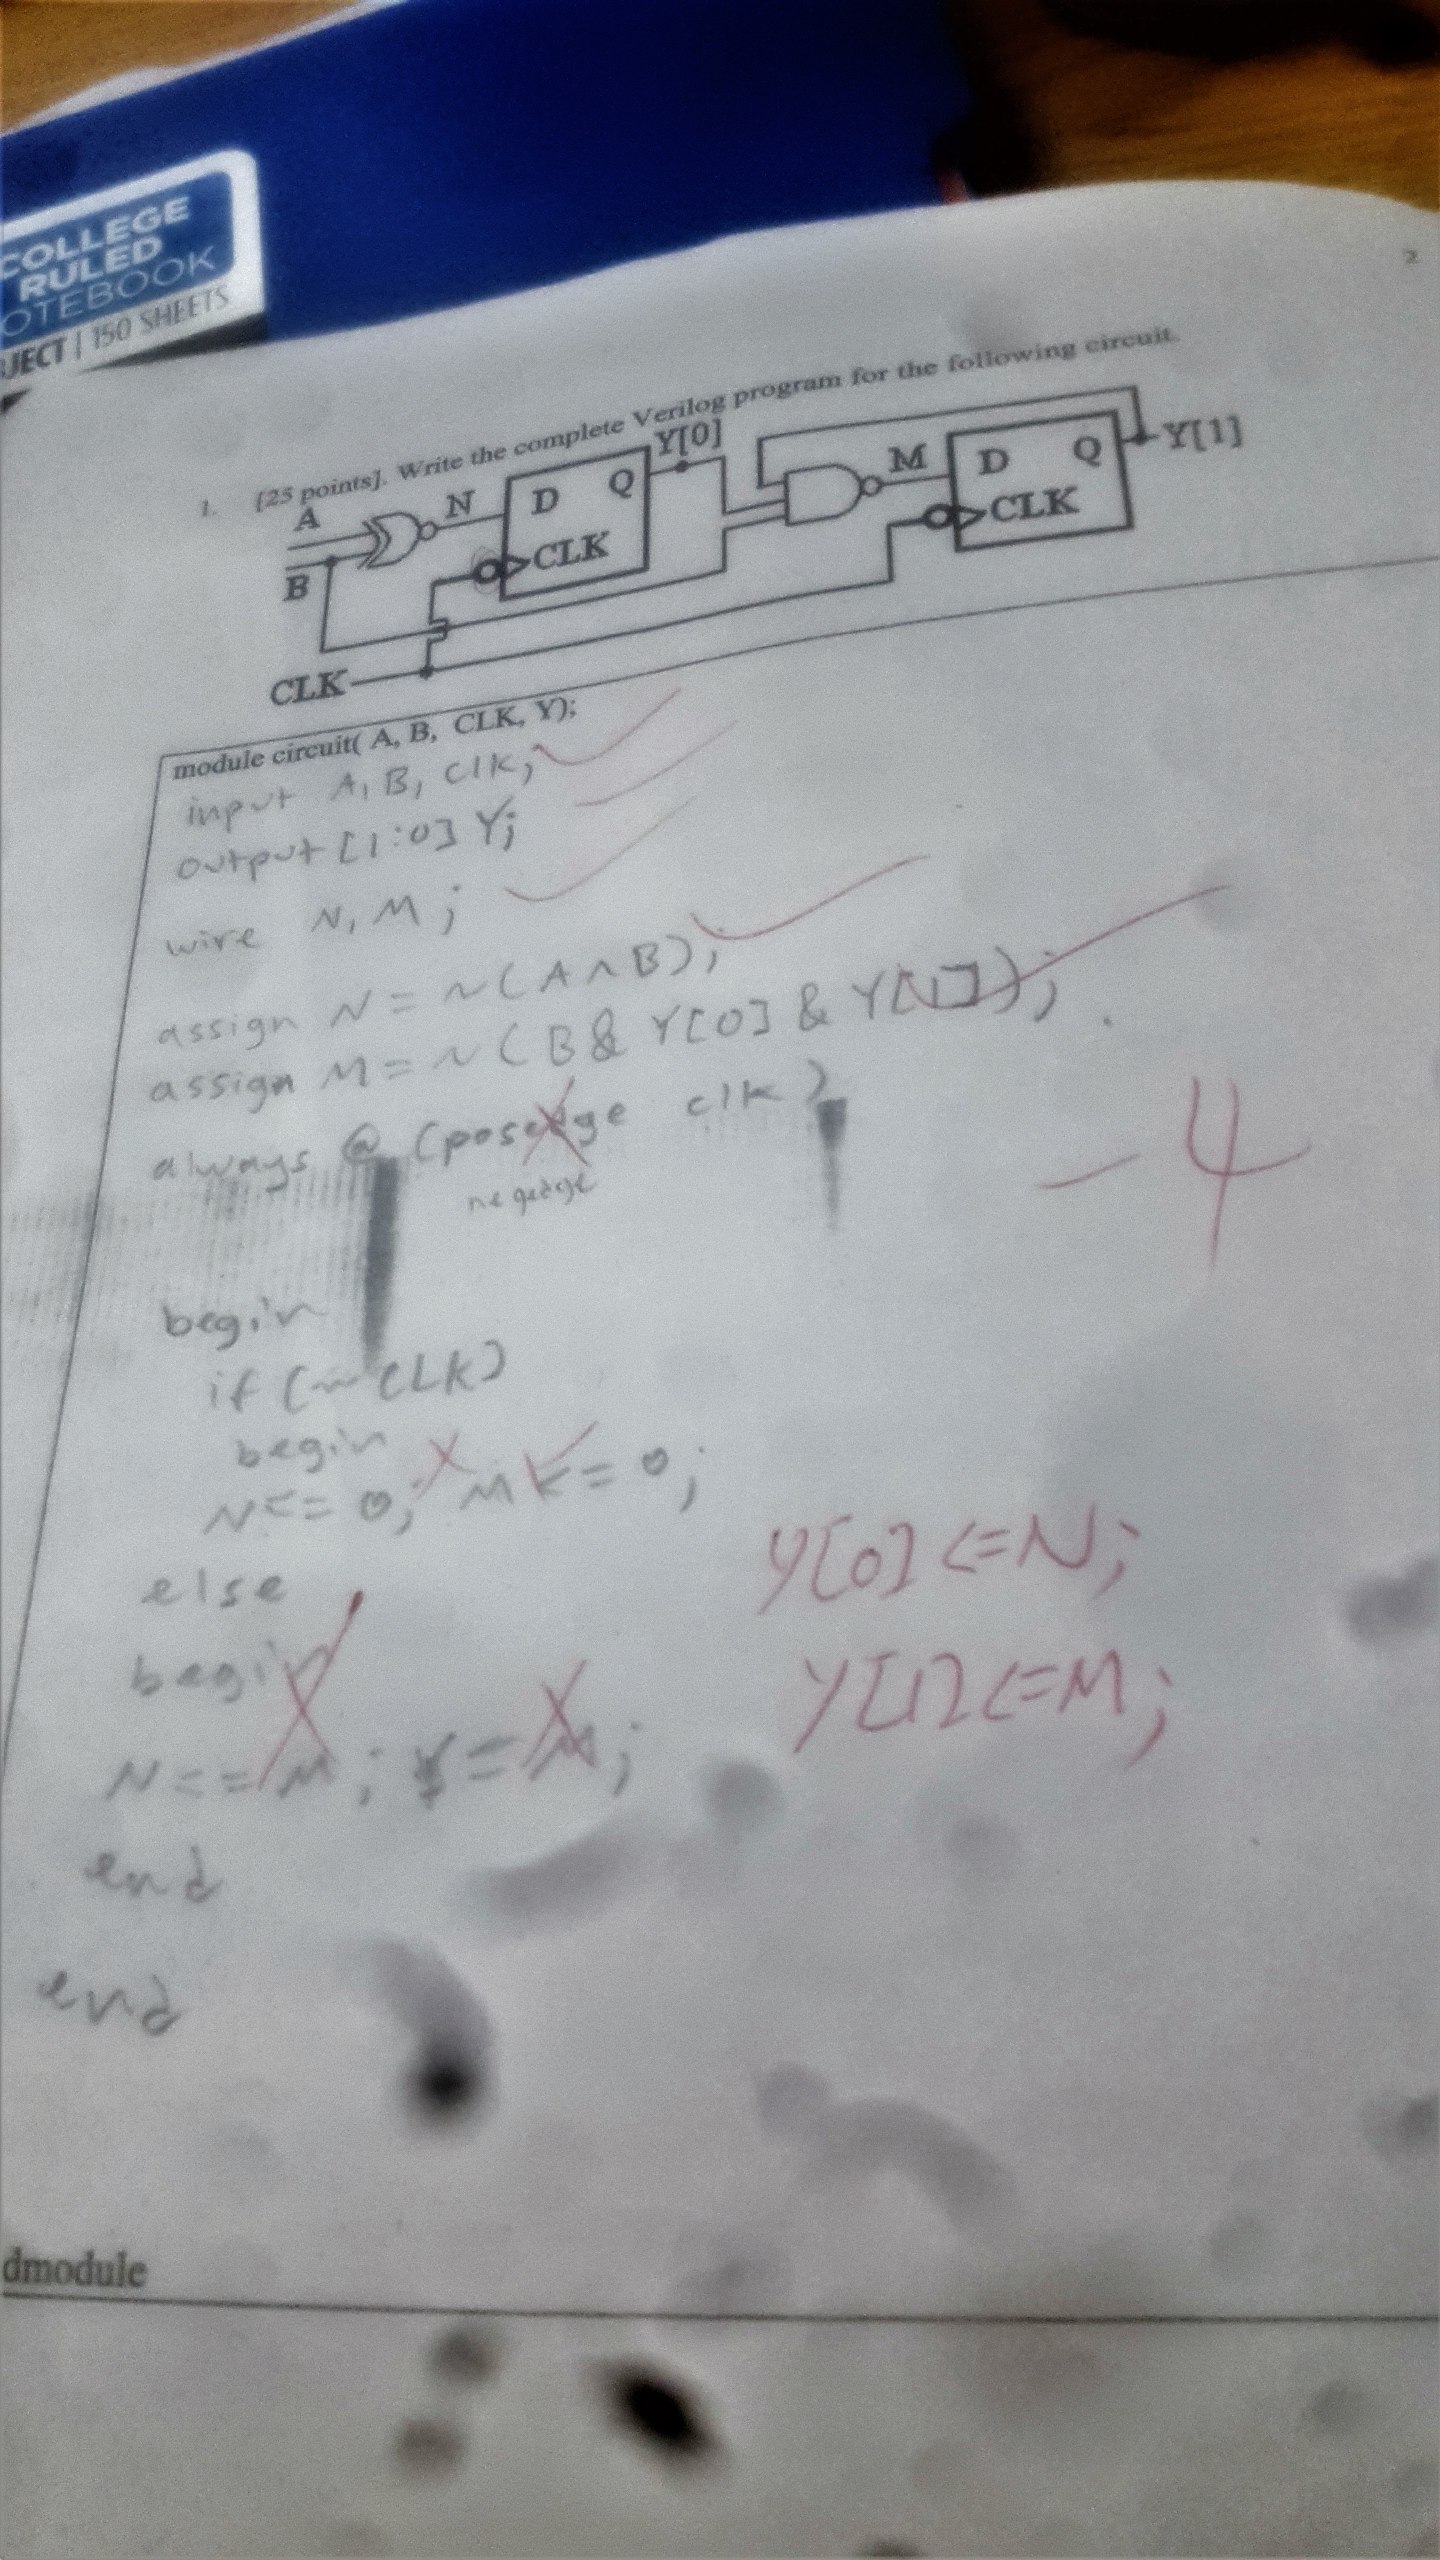 COLLEGE
RULED
OTEBOOK
JECT | 150 SHEETS
2
1. [25 points]. Write the complete Verilog program for the following circuit.
A
B
N
D Q
CLK
Y[0]
M
D Q
CLK
Y[1]
CLK
module circuit( A, B, CLK, Y);
input A, B, clk;
output [1:0] Y;
wire N, M;
assign N = ~(A ^ B);
assign M = ~(B & Y[0] & Y[1]);
always @ (posedge clk)
negedge
-4
begin
if (~CLK)
begin
N <= 0; M <= 0;
else
Y[0] <= N;
begin
Y[1] <= M;
N == M; Y = M;
end
end
dmodule